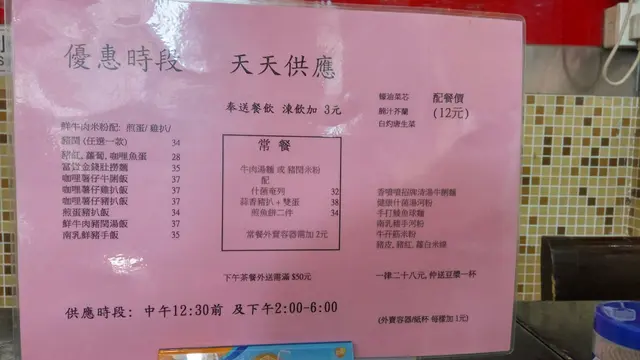 優惠時段 天天供應
奉送餐飲 凍飲加 3元
鮮牛肉米粉配: 煎蛋/雞扒/
豬膶 (任選一款) 34
豬紅, 蘿蔔, 咖哩魚蛋 28
富貴金錢肚撈麵 35
咖哩薯仔牛腩飯 37
咖哩薯仔雞扒飯 37
咖哩薯仔豬扒飯 37
煎蛋豬扒飯 34
鮮牛肉豬膶湯飯 37
南乳鮮豬手飯 35
常餐
牛肉湯麵 或 豬膶米粉
配
什菌奄列 32
蒜香豬扒+雙蛋 38
煎魚餅二件 34
常餐外賣容器需加 2元
蠔油菜芯
鮑汁芥蘭
白灼唐生菜
配餐價
(12元)
香噴噴招牌清湯牛腩麵
健康什菌湯河粉
手打鯪魚球麵
南乳豬手河粉
牛孖筋米粉
豬皮, 豬紅, 蘿白米線
一律二十八元, 伴送豆漿一杯
下午茶餐外送需滿 $50元
供應時段: 中午12:30前 及下午2:00-6:00
(外賣容器/紙杯 每樣加 1元)